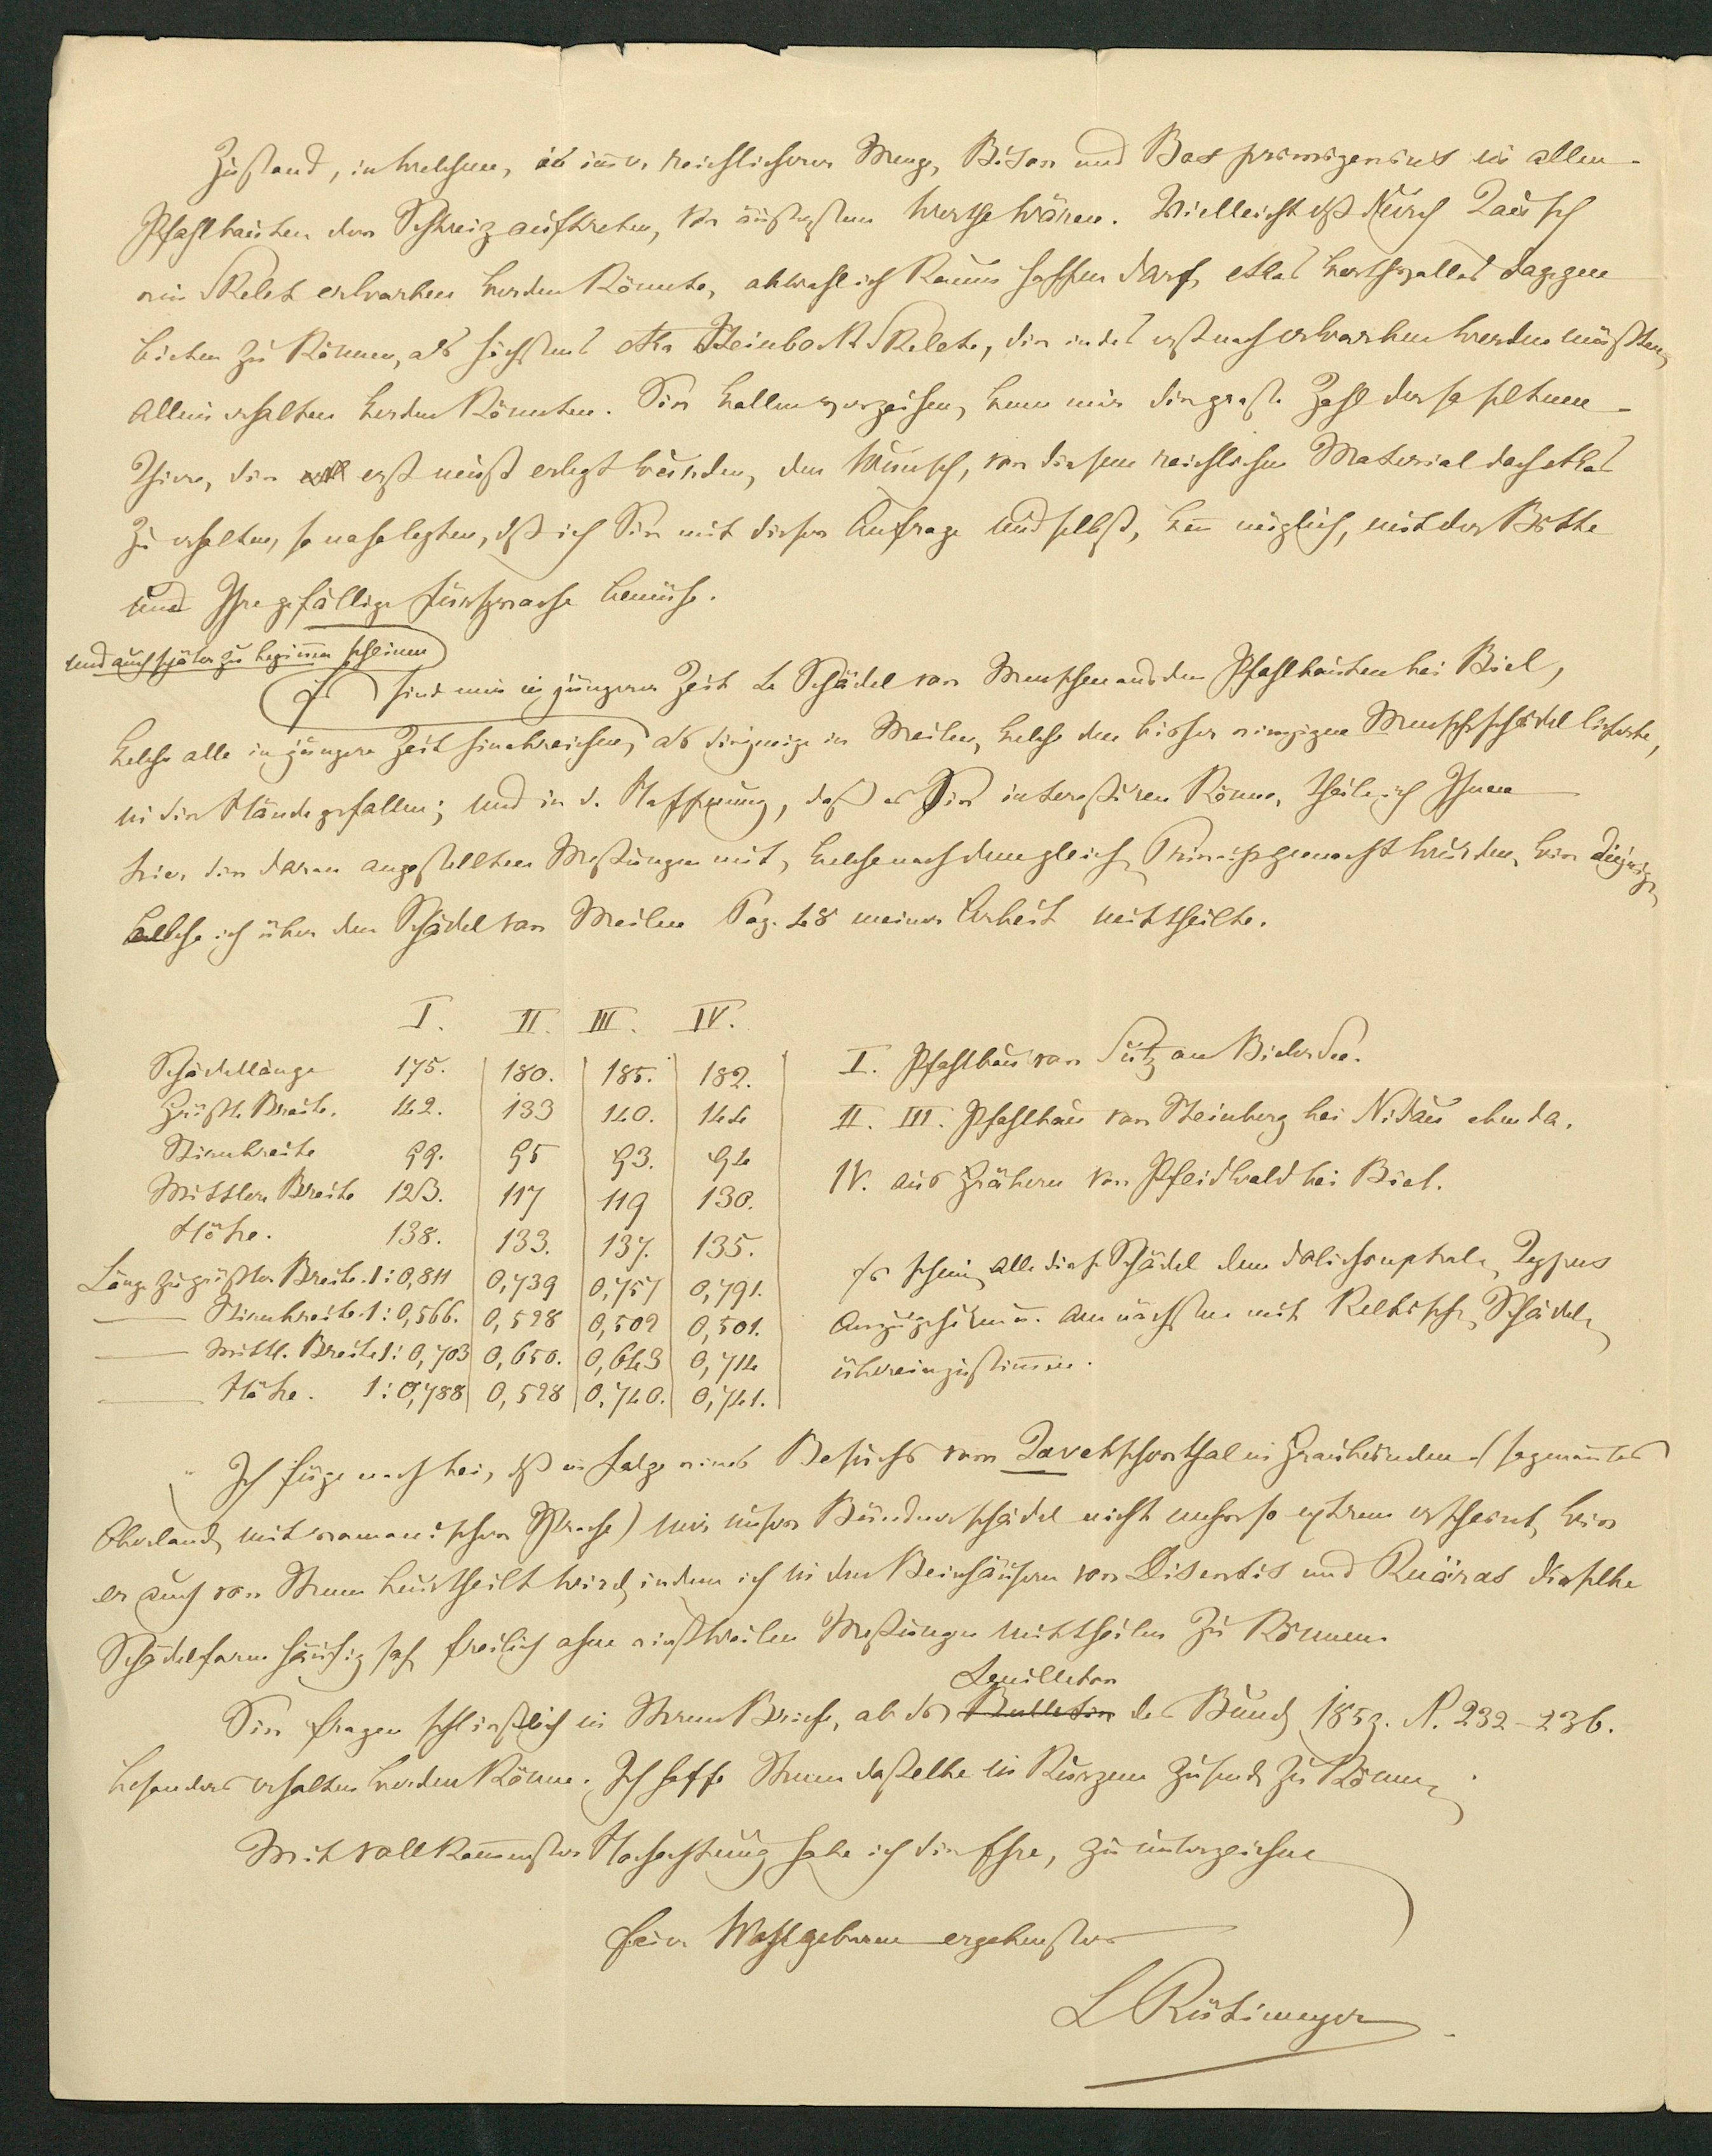 Zustand, in welchem, in immer reichlicherer Menge, Bison und Bos primigenius in allen
Pfahlbauten der Schweiz auftreten, von äußerstem Werthe wären. Vielleicht dß durch Tausch
ein Skelet erworben werden könnte, obwohl ich kaum hoffen darf, etwas werthvolles dagegen
bieten zu können, als höchstens etwa Steinbock Skelete, die indes erst noch erworben werden müßten,
allein erhalten werden könnten. Sie wollen verzeihen, wenn mir die große Zahl der so seltenen
Thiere, die erst neust erlegt wurden, den Wunsch, von diesem reichlichen Material doch etwas
zu erhalten, so nahe legten, dß ich Sie mit dieser Anfrage und selbst, wenn möglich, mit der Bitte
um Ihre gefällige Fürsprache bemühe.
und auch später zu beginnen scheinen
Es sind mir in jüngerer Zeit 4 Schädel von Menschen aus den Pfahlbauten bei Biel,
welche alle in jüngere Zeit hineinreichen, als diejenige in Meilen, welche den bisher einzigen Menschenschädel lieferte,
in die Hände gefallen; und in d. Hoffnung, daß es Sie interessiren könne, theile ich Ihnen
hier die daran angestellten Messungen mit, welche nach dem gleichen Prinzip gemacht wurden, wie diejenigen
welche ich über den Schädel von Meilen Pag. 48 meiner Arbeit mittheilte.
I. II. III. IV.
Schädellänge 175. 180. 185. 182.
Größte Breite. 142. 133 140. 144
Stirnbreite 99. 95 93. 94
Mittlere Breite 123. 117 119 130.
Höhe. 138. 133. 137. 135.
Länge zu größter Breite. 1:0,811 0,739 0,757 0,791.
— Stirnbreite. 1:0,566. 0,528 0,502 0,501.
— Mittl. Breite 1:0,703 0,650. 0,643 0,714
— Höhe. 1:0,788 0,528 0,740. 0,741.
I. Pfahlbau von Sutz am Bielersee.
II. III. Pfahlbau von Steinberg bei Nidau ebenda.
IV. aus Gräbern von Pfeidwald bei Biel.
Es scheinen alle diese Schädel dem dolichocephalen Typus
anzugehören u. am nächsten mit Keltischen Schädeln
übereinzustimmen.
Ich füge noch bei, dß in Folge eines Besuchs vom Tavetscherthal in Graubünden (sogenanntes
Oberland, mit romanischer Sprache) mir unser Bündnerschädel nicht mehr so extrem erscheint, wie
er auch von Ihnen beurtheilt wird, indem ich in den Beinhäusern von Disentis und Ruäras dieselbe
Schädelform häufig sah, freilich ohne einstweilen Messungen mittheilen zu können.
Feuilleton
Sie fragen schließlich in Ihrem Briefe, ob das Bulletin des Bund 1859. N. 232–236.
besonders erhalten werden könne. Ich hoffe Ihnen dasselbe in Kurzem zusenden zu können.
Mit vollkommenster Hochachtung habe ich die Ehre, zu unterzeichnen
Euer Wohlgeboren ergebenster
L Rütimeyer